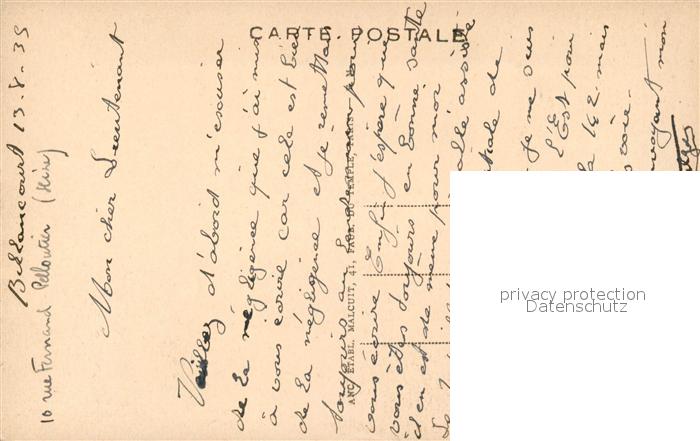 CARTE POSTALE
Billancourt 13.8.35
10 rue Fernand Pelloutier
Mon cher Lieutenant
Veuillez d'abord m'excuser
de la négligence que j'ai mis
à vous écrire car cela est bien
de la négligence et je remettai
toujours au lendemain pour
vous écrire Enfin j'espère que
vous êtes toujours en bonne santé
il en est de même pour moi
allé assisté
de
je me suis
L'Est pour
la 162 mais
voie.
envoyant mon
ANC. ÉTABL. MALCUIT, 41, FAUB. DU TEMPLE, PARIS
privacy protection
Datenschutz